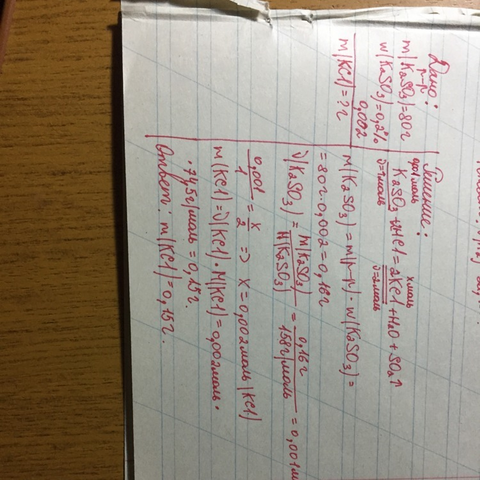 Дано:
р-р
m(K₂SO₃)=80г
w(K₂SO₃)=0,2%
0,002
m(KCl)=?г
Решение:
0,001моль хмоль
K₂SO₃+2HCl=2KCl+H₂O+SO₂↑
ν=1моль ν=2моль
m(K₂SO₃)=m(р-р)·w(K₂SO₃)=
=80г·0,002=0,16г
ν(K₂SO₃)=m(K₂SO₃)/M(K₂SO₃)=0,16г/158г/моль=0,001м
0,001/1=x/2 => x=0,002моль(KCl)
m(KCl)=ν(KCl)·M(KCl)=0,002моль·
·74,5г/моль=0,15г.
Ответ: m(KCl)=0,15г.